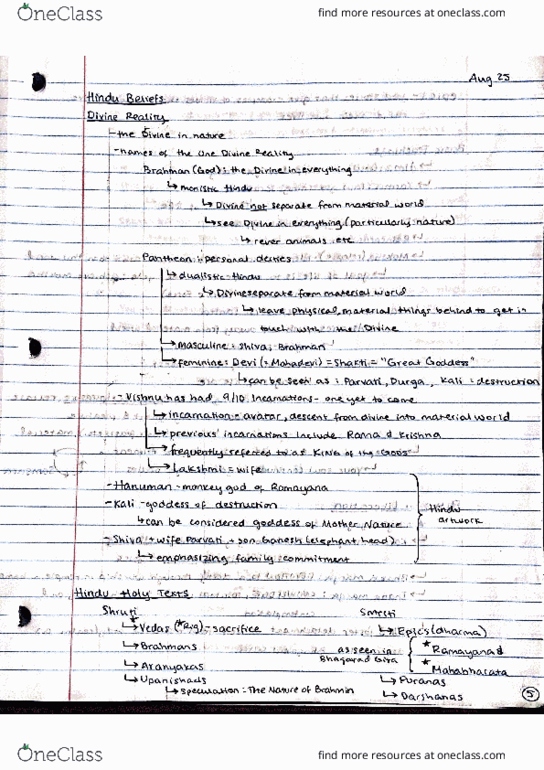 OneClass
find more resources at oneclass.com
Aug 25
Hindu Beliefs
Divine Reality
- the Divine in nature
- names of the One Divine Reality
Brahman (God): the Divine in everything
↳ monistic Hindu
↳ Divine not separate from material world
↳ see Divine in everything (particularly nature)
↳ rever animals etc
Pantheon: personal deities
↳ dualistic Hindu
↳ Divine separate from material world
↳ leave physical, material things behind to get in
touch with the Divine
↳ masculine: Shiva, Brahman
↳ feminine: Devi (= Mahadevi) = Shakti = "Great Goddess"
↳ can be seen as: Parvati, Durga, Kali = destruction
- Vishnu has had 9/10 incarnations - one yet to come
↳ incarnation = avatar, descent from divine into material world
↳ previous incarnations include Rama & Krishna
↳ frequently referred to as King of the Gods
↳ Lakshmi = wife
- Hanuman - monkey god of Ramayana
- Kali - goddess of destruction
↳ can be considered goddess of Mother Nature
Hindu
artwork
- Shiva + wife Parvati + son Ganesh (elephant head)
↳ emphasizing family commitment
Hindu Holy Texts
Shruti
Smriti
↳ Vedas (*Rig) - sacrifice
↳ Epics (dharma)
↳ Brahmans
as seen in
Bhagavad Gita
* Ramayana &
* Mahabharata
↳ Aranyakas
↳ Upanishads
↳ Puranas
↳ speculation: The Nature of Brahmin
↳ Darshanas
5
OneClass
find more resources at oneclass.com